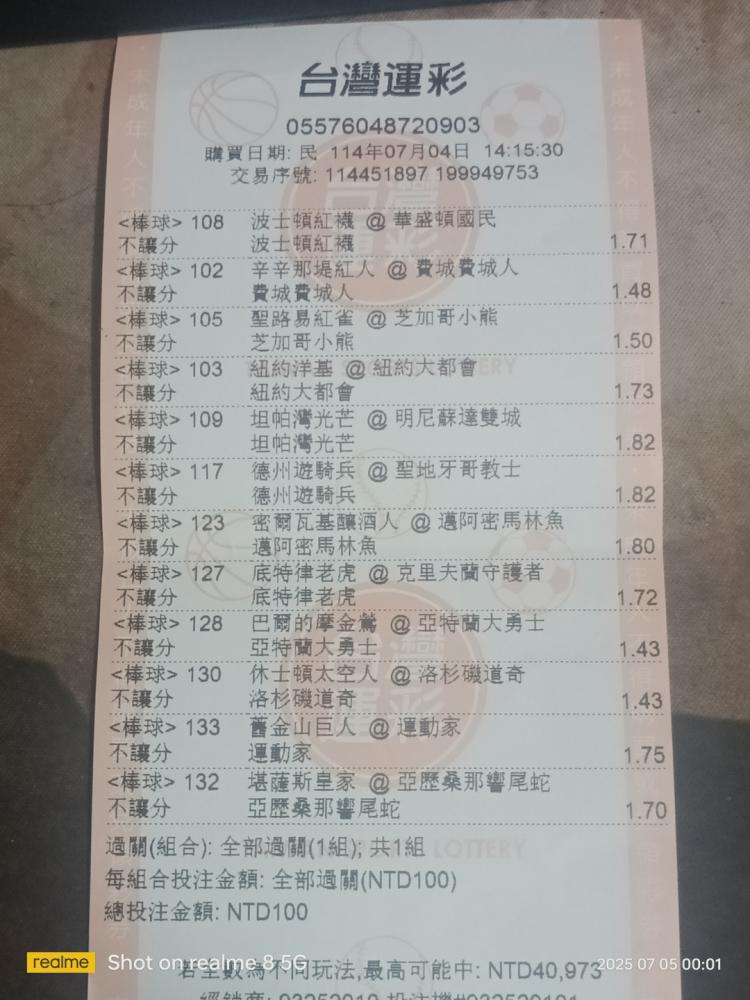 台灣運彩
05576048720903
購買日期: 民 114年07月04日 14:15:30
交易序號: 114451897 199949753
<棒球> 108 波士頓紅襪 @ 華盛頓國民
不讓分 波士頓紅襪 1.71
<棒球> 102 辛辛那堤紅人 @ 費城費城人
不讓分 費城費城人 1.48
<棒球> 105 聖路易紅雀 @ 芝加哥小熊
不讓分 芝加哥小熊 1.50
<棒球> 103 紐約洋基 @ 紐約大都會
不讓分 紐約大都會 1.73
<棒球> 109 坦帕灣光芒 @ 明尼蘇達雙城
不讓分 坦帕灣光芒 1.82
<棒球> 117 德州遊騎兵 @ 聖地牙哥教士
不讓分 德州遊騎兵 1.82
<棒球> 123 密爾瓦基釀酒人 @ 邁阿密馬林魚
不讓分 邁阿密馬林魚 1.80
<棒球> 127 底特律老虎 @ 克里夫蘭守護者
不讓分 底特律老虎 1.72
<棒球> 128 巴爾的摩金鶯 @ 亞特蘭大勇士
不讓分 亞特蘭大勇士 1.43
<棒球> 130 休士頓太空人 @ 洛杉磯道奇
不讓分 洛杉磯道奇 1.43
<棒球> 133 舊金山巨人 @ 運動家
不讓分 運動家 1.75
<棒球> 132 堪薩斯皇家 @ 亞歷桑那響尾蛇
不讓分 亞歷桑那響尾蛇 1.70
過關(組合): 全部過關(1組); 共1組
每組合投注金額: 全部過關(NTD100)
總投注金額: NTD100
若全數為不同玩法,最高可能中: NTD40,973
realme Shot on realme 8 5G 2025 07 05 00:01